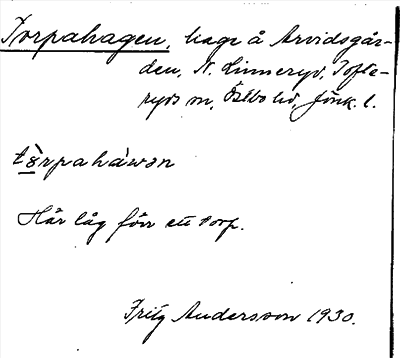 Torpahagen, hage å Arvidsgår-
den, N. Linneryd, Tofte-
ryds sn, Östbo hd, Jönk. l.
tò̤rpahàwən
Här låg förr ett torp.
Fritz Andersson 1930.